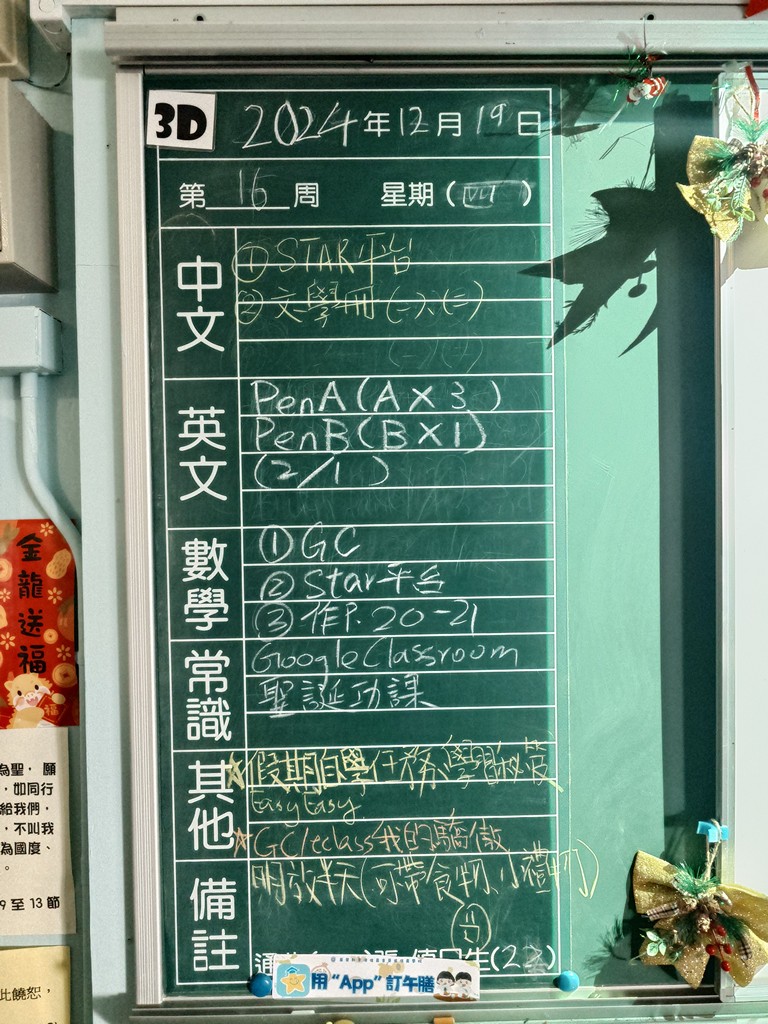 3D 2024年12月19日
第16周 星期(四)
中文
①STAR平台
②文學冊(一)、(二)
英文
PenA(A×3)
PenB(B×1)
(2/1)
數學
①GC
②Star平台
③作P.20-21
常識
GoogleClassroom
聖誕功課
其他
☆假期自學任務、學習秘笈
EasyEasy
☆GC/eclass我的驕傲
備註
明放半天(可帶食物、小禮物)
通 值日生(22)
用“App”訂午膳
金龍送福
為聖，願
，如同行
給我們，
，不叫我
為國度、
。
9至13節
此饒恕，